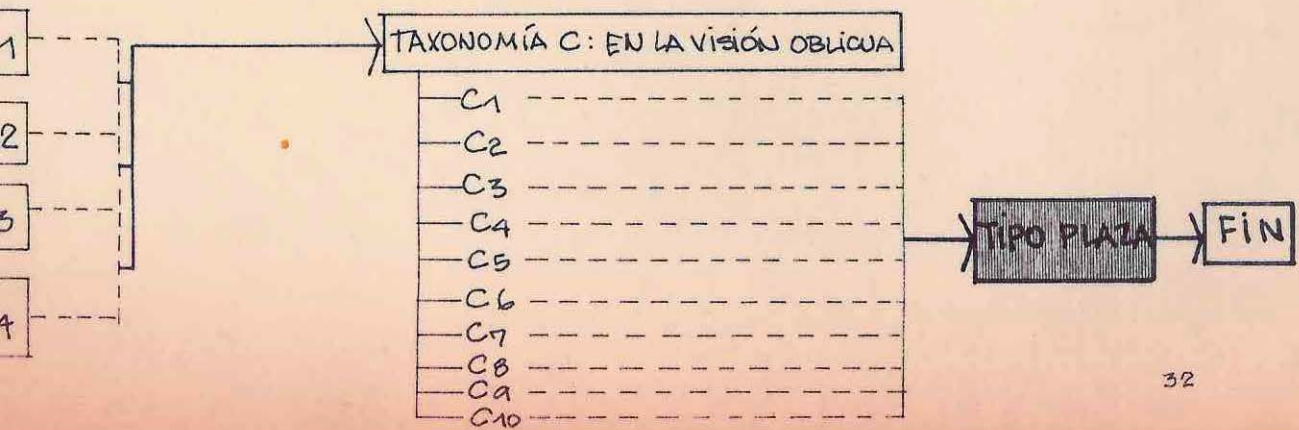 1
2
3
4
TAXONOMÍA C: EN LA VISIÓN OBLICUA
C1
C2
C3
C4
C5
C6
C7
C8
C9
C10
TIPO PLAZA
FIN
32